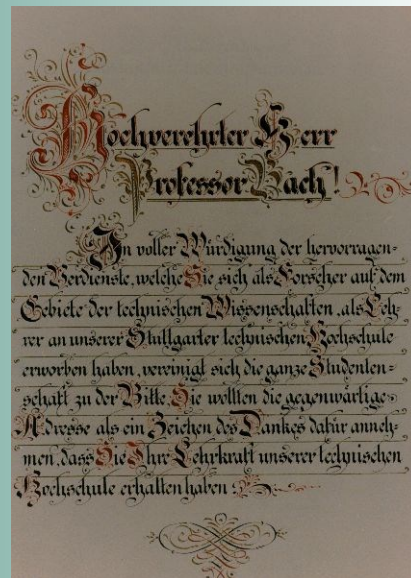 Hochverehrter Herr
Professor Bach!
In voller Würdigung der hervorragen=
den Verdienste, welche Sie sich als Forscher auf dem
Gebiete der technischen Wissenschaften, als Leh=
rer an unserer Stuttgarter technischen Hochschule
erworben haben, vereinigt sich die ganze Studenten=
schaft zu der Bitte, Sie wollten die gegenwärtige
Adresse als ein Zeichen des Dankes dafür anneh=
men, dass Sie Ihre Lehrkraft unserer technischen
Hochschule erhalten haben.